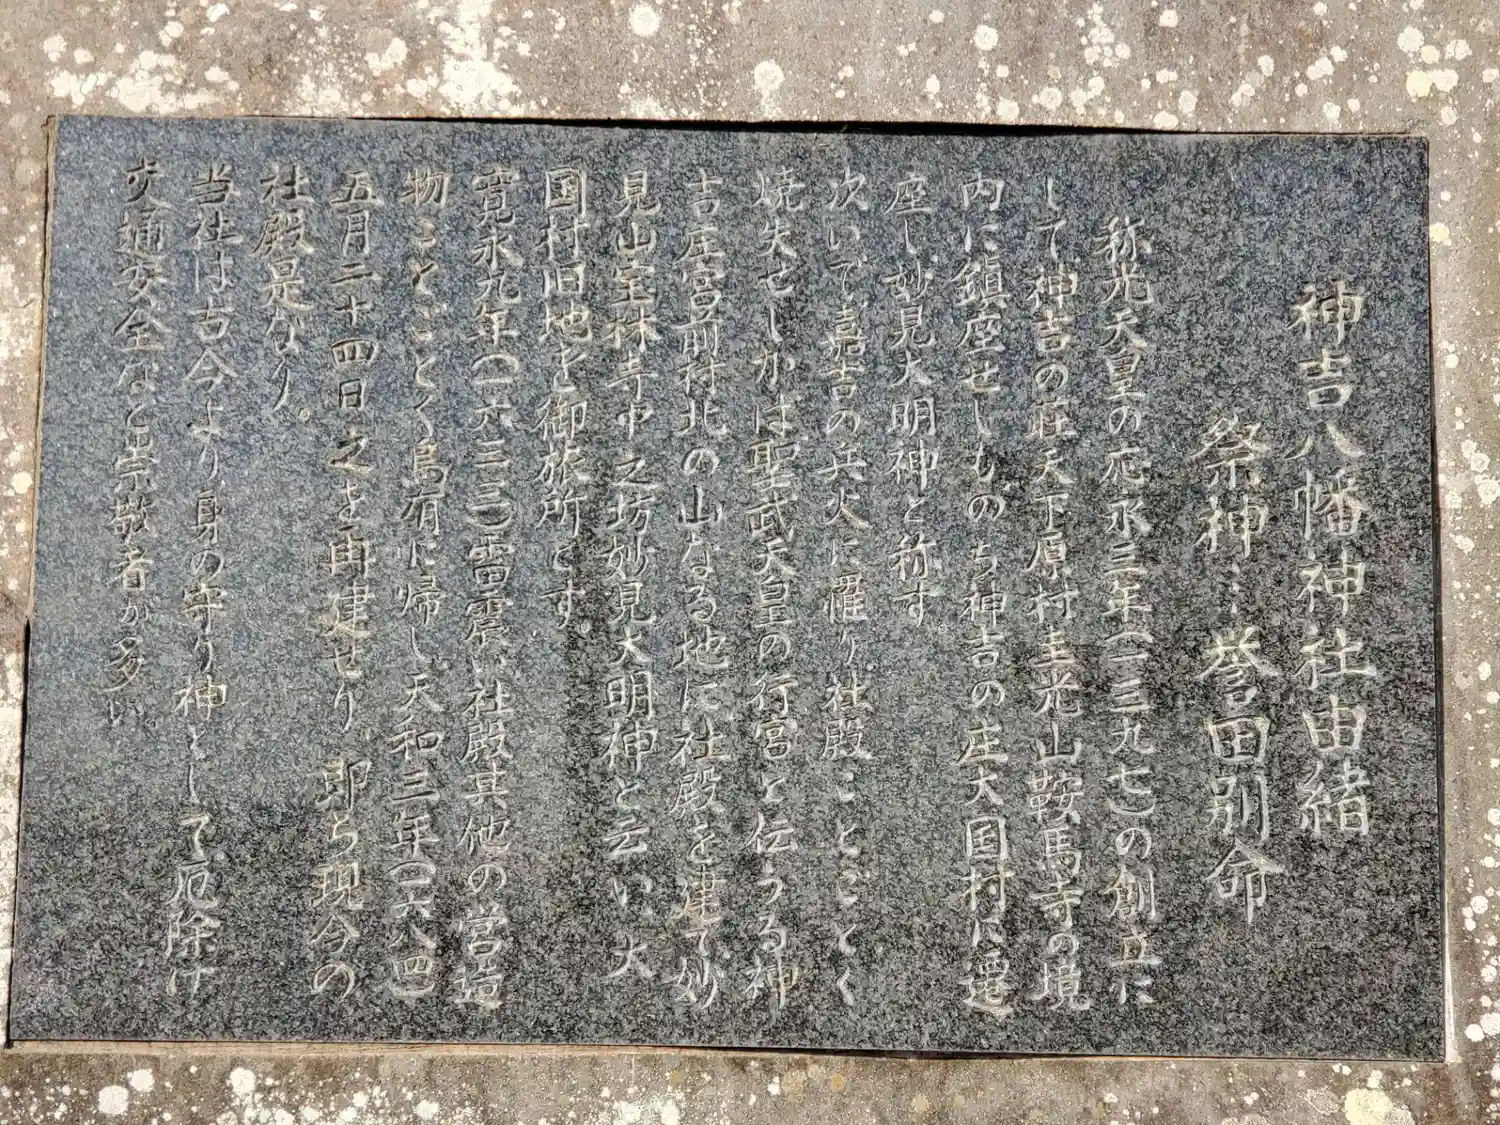 神吉八幡神社由緒
祭神…誉田別命
称光天皇の応永三年(一三九七)の創立に
して神吉の荘天下原村圭光山鞍馬寺の境
内に鎮座せしもの ち神吉の庄大国村に遷
座し、妙見大明神と称す。
次いで嘉吉の兵火に罹り、社殿ことごとく
焼失せしかば聖武天皇の行宮と伝うる神
吉庄宮前村北の山なる地に社殿を建て、妙
見山宝林寺中之坊妙見大明神と云い、大
国村旧地を御旅所とす。
寛永九年(一六三三)雷震い社殿其他の営造
物ことごとく烏有に帰し、天和三年(一六八四)
五月二十四日之を再建せり、即ち現今の
社殿是なり。
当社は古今より身の守り神として、厄除け
交通安全などと崇敬者が多い。